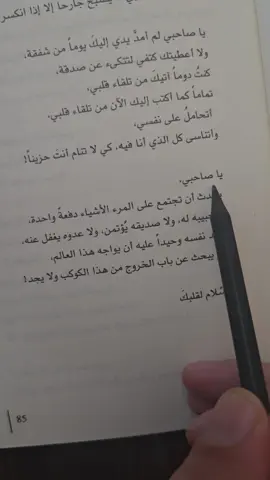 جارحاً إلا إذا انكسر
يا صاحبي لم أمدَّ يدي إليكَ يوماً من شفقة،
ولا أعطيتك كتفي لتتكىء عن صدقة،
كنتُ دوماً آتيكَ من تلقاء قلبي،
تماماً كما أكتب إليك الآن من تلقاء قلبي.
أتحاملُ على نفسي،
وأتناسى كل الذي أنا فيه، كي لا تنام أنتَ حزيناً!
يا صاحبي،
أن تجتمع على المرء الأشياء دفعةً واحدة،
حبيبه له، ولا صديقه يُؤتمن، ولا عدوه يغفل عنه،
نفسه وحيداً عليه أن يواجه هذا العالم،
يبحث عن باب الخروج من هذا الكوكب ولا يجد!
لقلبكَ
85